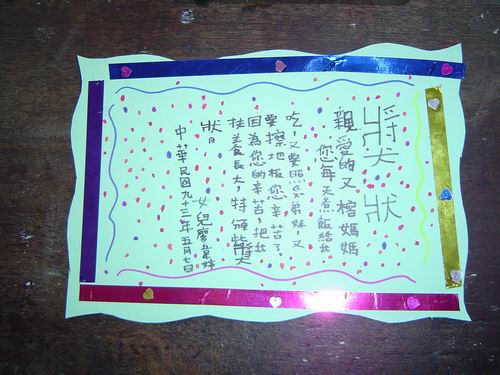 獎狀
親愛的又榕媽媽
您每天煮飯給我
吃,又要照弟妹,又
要擦地板您辛苦了,
因為您的辛苦,把我
養長大,特頒此獎
狀。
女兒廖婷
中華民國九十三年五月七日